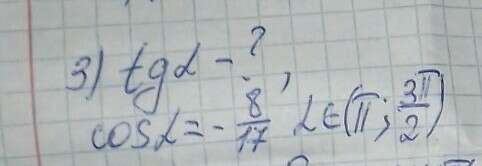 3) tgα - ?,
cosα = - 8/17, α ∈ (π; 3π/2)